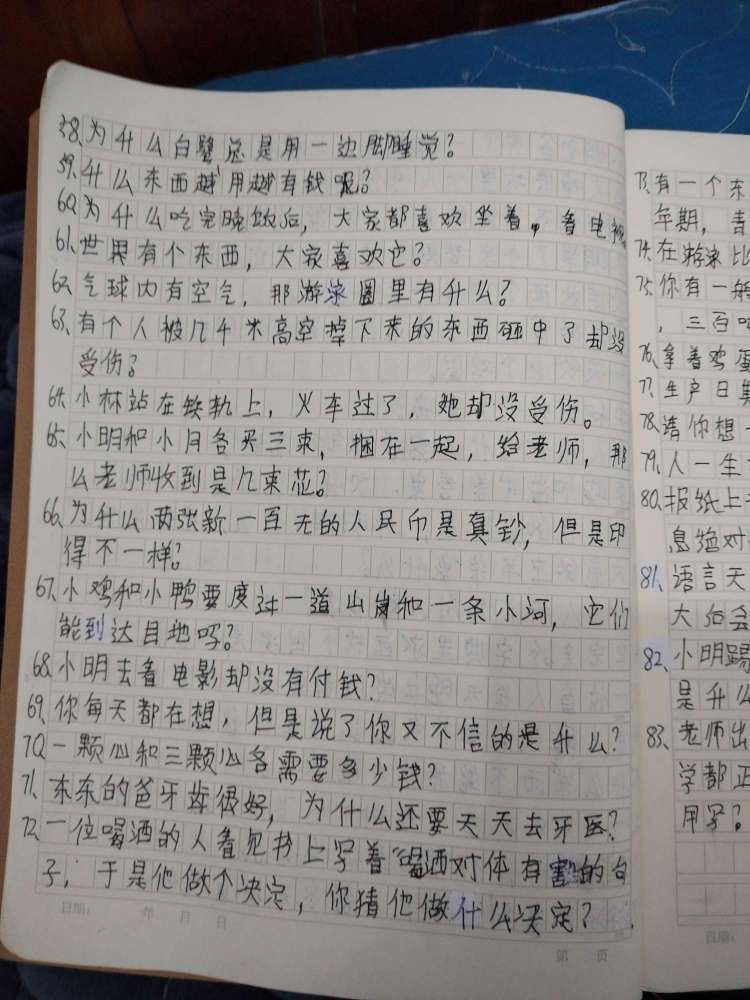 58、为什么白鹭总是用一边脚睡觉?
59、什么东西越用越有钱呢?
60、为什么吃完晚饭后，大家都喜欢坐着，看电视
61、世界有个东西，大家喜欢它?
62、气球内有空气，那游泳圈里有什么?
63、有个人被几千米高空掉下来的东西砸中了却没
受伤?
64、小林站在铁轨上，火车过了，她却没受伤。
65、小明和小月各买三束，捆在一起，给老师，那
么老师收到是几束花?
66、为什么两张新一百元的人民币是真钞，但是印
得不一样?
67、小鸡和小鸭要度过一道山岗和一条小河，它们
能到达目地吗?
68、小明去看电影却没有付钱?
69、你每天都在想，但是说了你又不信的是什么?
70、一颗心和三颗心各需要多少钱?
71、东东的爸牙齿很好，为什么还要天天去牙医?
72、一位喝酒的人看见书上写着“喝酒对体有害的句
子，于是他做个决定，你猜他做什么决定?
日期: 年 月 日
第 页
73、有一个东
年期，青
74、在游泳比
75、你有一艘
，三百
76、拿着鸡蛋
77、生产日期
78、请你想一
79、人一生
80、报纸上
息绝对
81、语言天
大会
82、小明踢
是什么
83、老师出
学都正
用字?
日期: